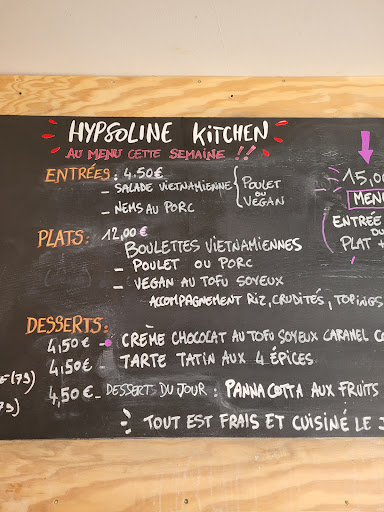 HYPSOLINE KITCHEN
AU MENU CETTE SEMAINE !!
ENTRÉES : 4.50€
- SALADE VIETNAMIENNE { POULET OU VEGAN
- NEMS AU PORC
PLATS : 12,00€
BOULETTES VIETNAMIENNES
- POULET OU PORC
- VEGAN AU TOFU SOYEUX
ACCOMPAGNEMENT RIZ, CRUDITÉS, TOPINGS
DESSERTS :
4,50€ - CRÈME CHOCOCAT AU TOFU SOYEUX CARAMEL CO
4,50€ - TARTE TATIN AUX 4 ÉPICES
4,50€ - DESSERT DU JOUR : PANNA COTTA AUX FRUITS
TOUT EST FRAIS ET CUISINÉ LE J
15,00
MENU
ENTRÉE
OU
PLAT +
€ (75)
75)